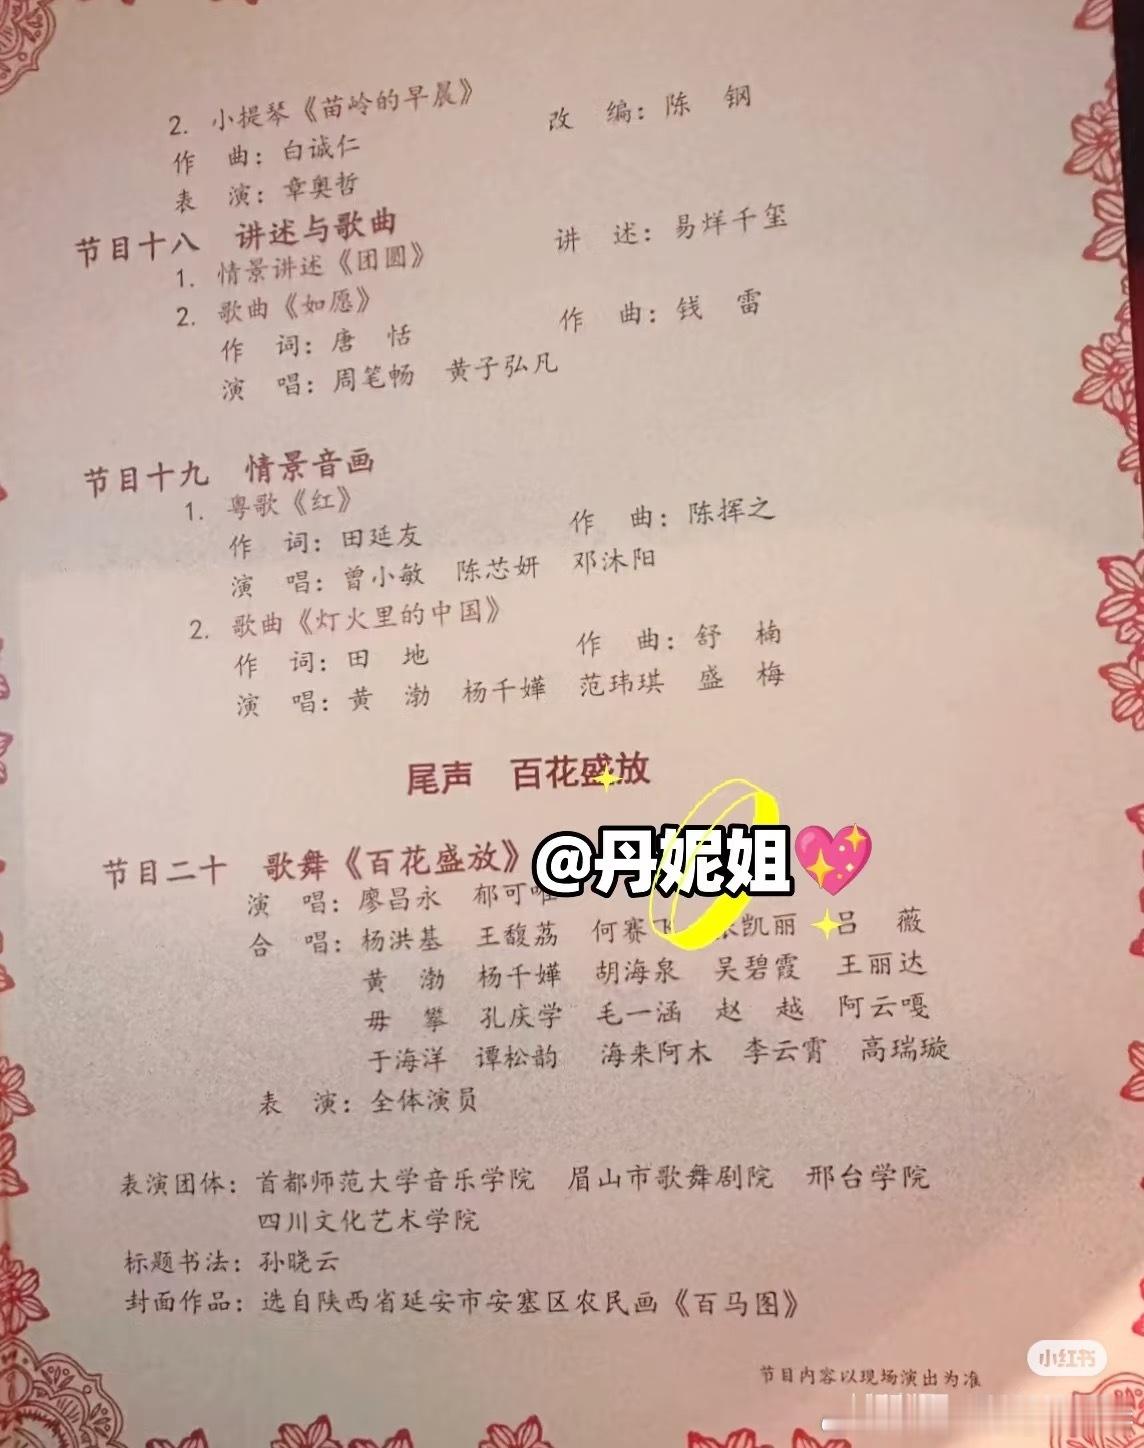 2. 小提琴《苗岭的早晨》 改 编：陈 钢
作 曲：白诚仁
表 演：章奥哲
节目十八 讲述与歌曲
1. 情景讲述《团圆》 讲 述：易烊千玺
2. 歌曲《如愿》
作 词：唐 恬 作 曲：钱 雷
演 唱：周笔畅 黄子弘凡
节目十九 情景音画
1. 粤歌《红》
作 词：田延友 作 曲：陈挥之
演 唱：曾小敏 陈芯妍 邓沐阳
2. 歌曲《灯火里的中国》
作 词：田 地 作 曲：舒 楠
演 唱：黄 渤 杨千嬅 范玮琪 盛 梅
尾声 百花盛放
节目二十 歌舞《百花盛放》
@丹妮姐
演 唱：廖昌永 郁可唯
合 唱：杨洪基 王馥荔 何赛飞 凯丽 吕 薇
黄 渤 杨千嬅 胡海泉 吴碧霞 王丽达
毋 攀 孔庆学 毛一涵 赵 越 阿云嘎
于海洋 谭松韵 海来阿木 李云霄 高瑞璇
表 演：全体演员
表演团体：首都师范大学音乐学院 眉山市歌舞剧院 邢台学院
四川文化艺术学院
标题书法：孙晓云
封面作品：选自陕西省延安市安塞区农民画《百马图》
小红书
节目内容以现场演出为准